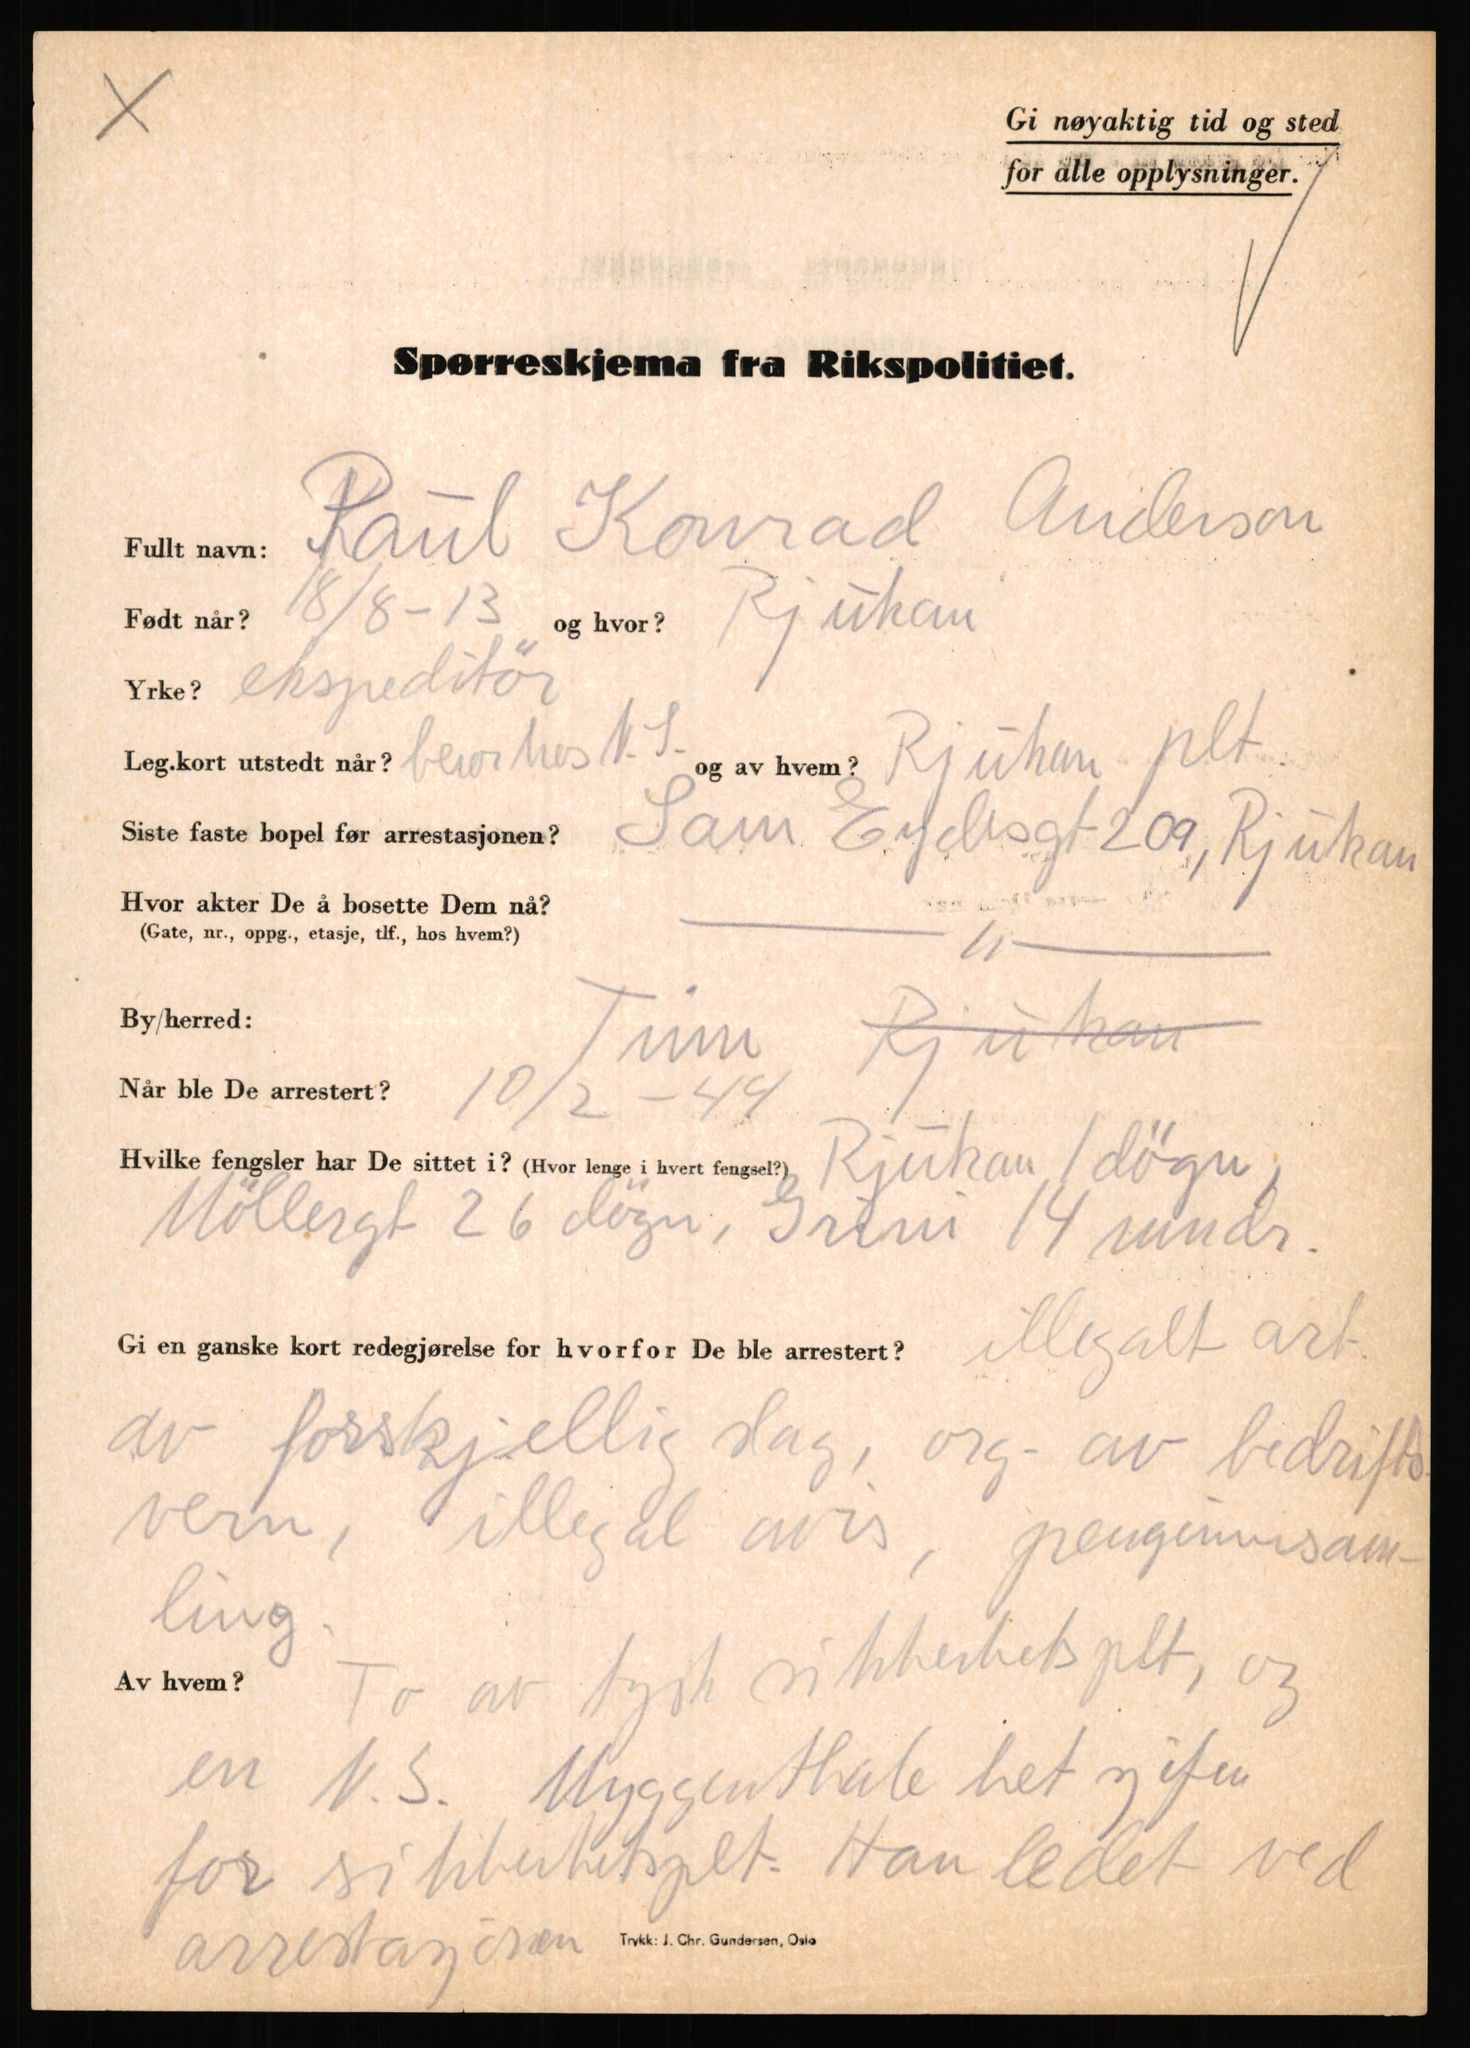 Gi nøyaktig tid og sted
for alle opplysninger.
Spørreskjema fra Rikspolitiet.
Fullt navn: Paul Konrad Anderson
Født når? 18/8-13 og hvor? Rjukan
Yrke? ekspeditör
Leg.kort utstedt når? beror hos N.S. og av hvem? Rjukan plt.
Siste faste bopel før arrestasjonen? Sam Eydesgt 209, Rjukan
Hvor akter De å bosette Dem nå? — " —
(Gate, nr., oppg., etasje, tlf., hos hvem?)
By/herred: Tinn Rjukan
Når ble De arrestert? 10/2-44
Hvilke fengsler har De sittet i? (Hvor lenge i hvert fengsel?) Rjukan 1 dögn,
Möllergt 26 dögn, Grini 14 mndr.
Gi en ganske kort redegjørelse for hvorfor De ble arrestert? illegalt arb.
av forskjellig slag, org. av bedrifts-
vern, illegal avis, pengeinnsam-
ling.
Av hvem? To av tysk sikkerhetsplt, og
en N.S. Myggenthale het sjefen
for sikkerhetsplt. Han ledet ved
arrestasjonen
Trykk: J. Chr. Gundersen, Oslo